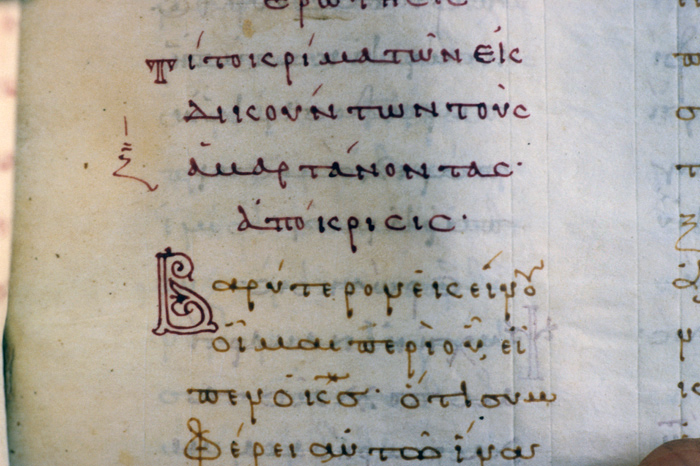 ἐρώτησις
Τί τὸ κρίμα τῶν ἐκ
δικούντων τοὺς
ἁμαρτάνοντας·
ἀπόκρισις·
Βαρύτερον ἐκείνου
οἶμαι περὶ οὗ εἶ
πεν ὁ κς· ὅτι συμ
φέρει αὐτῶ ἵνα